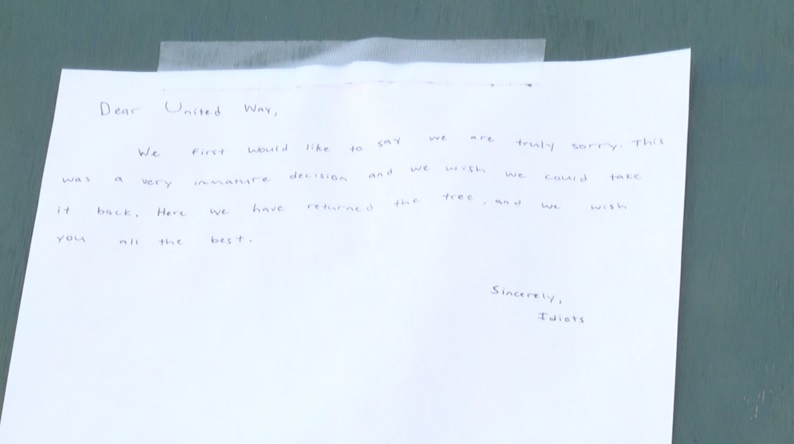 Dear United Way,
We first would like to say we are truly sorry. This
was a very immature decision and we wish we could take
it back. Here we have returned the tree, and we wish
you all the best.
Sincerely,
Idiots